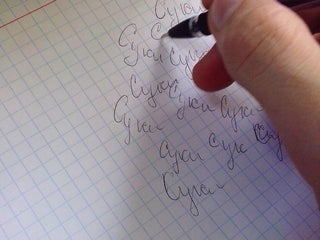 Суки
Суки Суки
Суки
Суки Суки Суки
Суки Сук
Суки